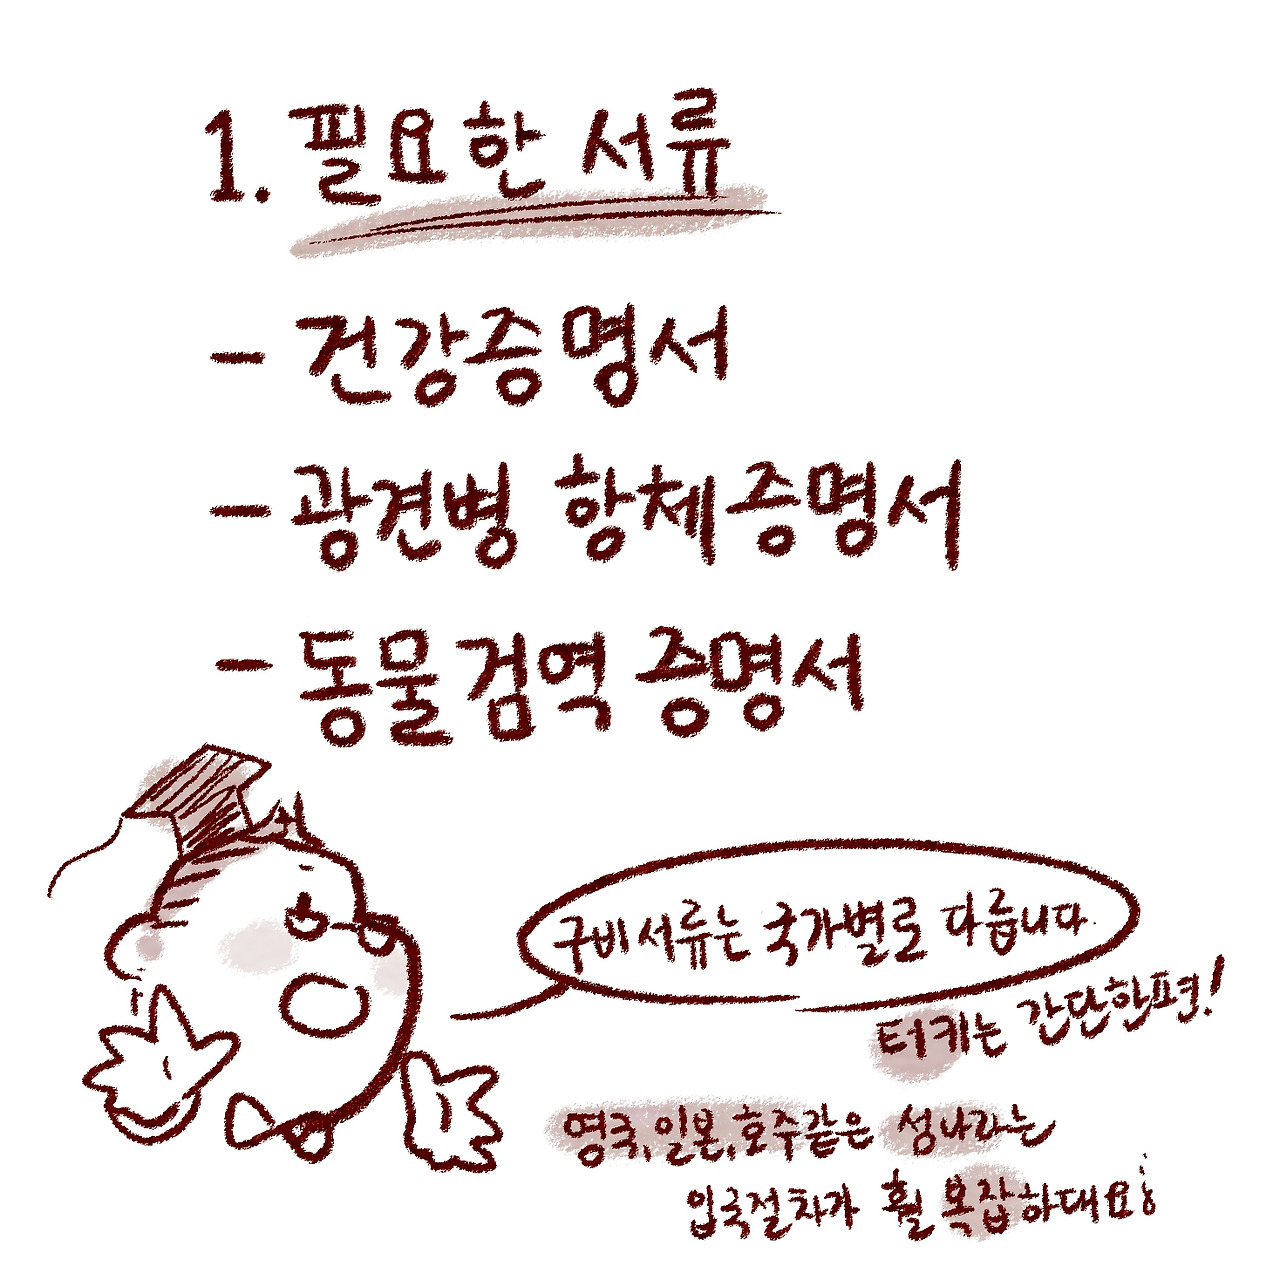 1. 필요한 서류
- 건강증명서
- 광견병 항체증명서
- 동물검역 증명서
구비서류는 국가별로 다릅니다.
터키는 간단한편!
영국,일본,호주같은 섬나라는
입국절차가 훨 복잡하대요;